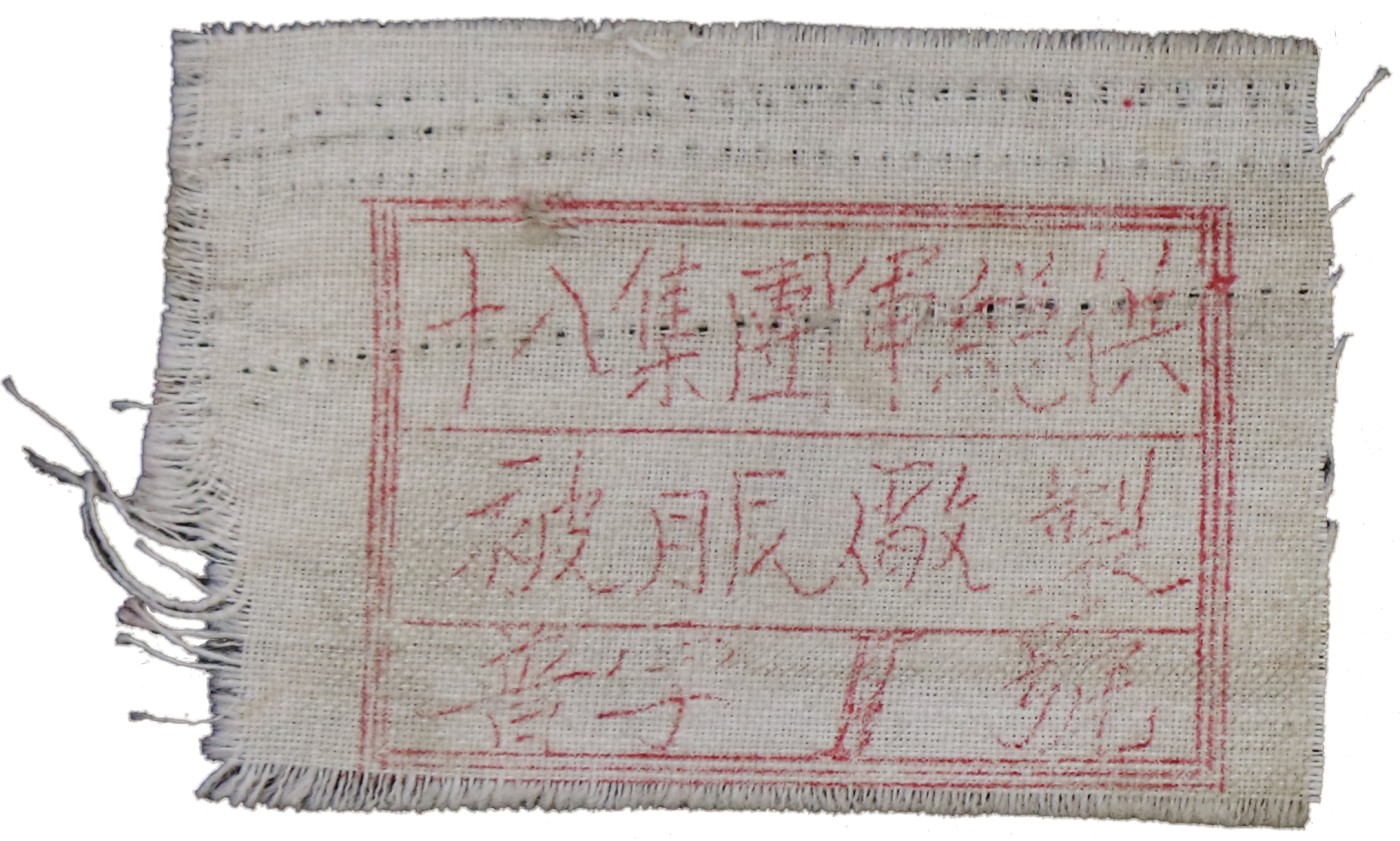 十八集團軍總供
被服廠製
晉字 II 號